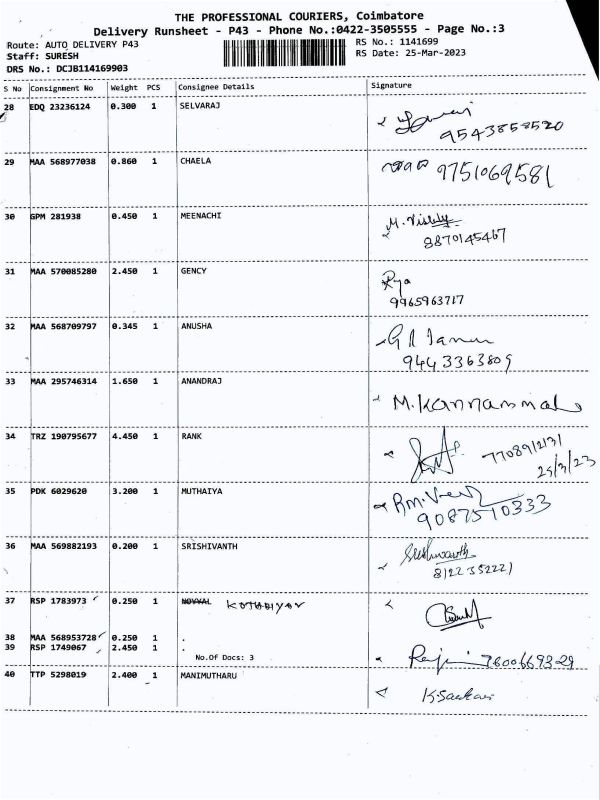 THE PROFESSIONAL COURIERS, Coimbatore
Delivery Runsheet - P43 - Phone No.:0422-3505555 - Page No.:3
Route: AUTO DELIVERY P43
RS No.: 1141699
Staff: SURESH
RS Date: 25-Mar-2023
DRS No.: DCJB114169903
S No Consignment No Weight PCS Consignee Details Signature
28 EDQ 23236124 0.300 1 SELVARAJ
9543858520
29 MAA 568977038 0.860 1 CHAELA
9751069581
30 GPM 281938 0.450 1 MEENACHI
8870145467
31 MAA 570085280 2.450 1 GENCY
9965963717
32 MAA 568709797 0.345 1 ANUSHA
9443363809
33 MAA 295746314 1.650 1 ANANDRAJ
M.Kannammal
34 TRZ 190795677 4.450 1 RANK
7708912131
25/3/23
35 PDK 6029620 3.200 1 MUTHAIYA
9087510333
36 MAA 569882193 0.200 1 SRISHIVANTH
8122352221
37 RSP 1783973 0.250 1
38 MAA 568953728 0.250 1 .
39 RSP 1749067 2.450 1 .
No.Of Docs: 3
7600669329
40 TTP 5298019 2.400 1 MANIMUTHARU